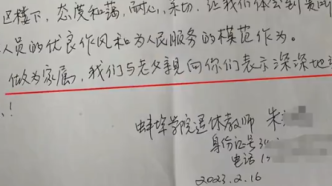 过程下，态度和蔼，耐心，亲切，让我们体会到贵
人员的优良作风和为人民服务的模范作为。
做为家属，我们与老父亲向你们表示深深地
！
蚌埠学院退休教师 朱
身份证号3
电话1
2023.2.16